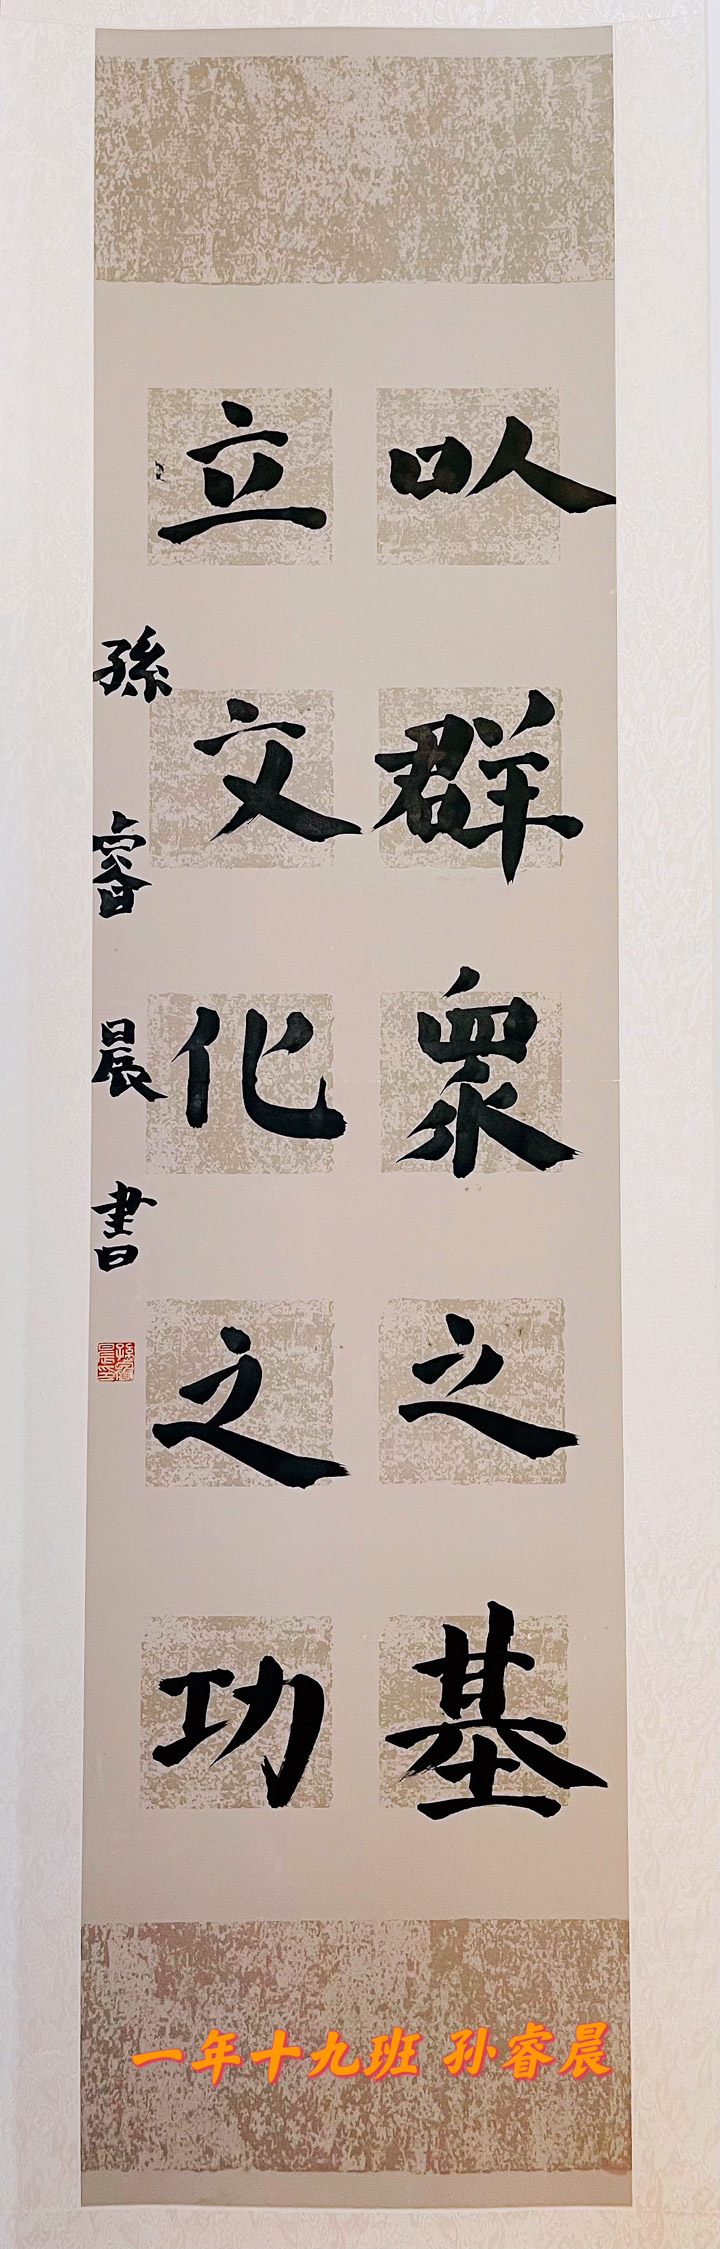 以群衆之基
立文化之功
孫睿晨書
一年十九班 孙睿晨